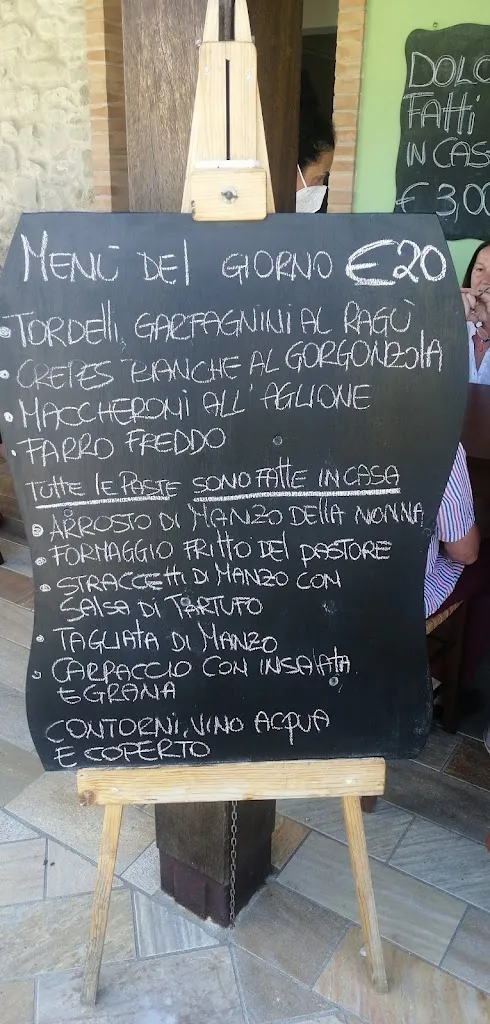 MENÙ DEL GIORNO €20
TORDELLI GARFAGNINI AL RAGÙ
CREPES BIANCHE AL GORGONZOLA
MACCHERONI ALL'AGLIONE
FARRO FREDDO
TUTTE LE PASTE SONO FATTE IN CASA
ARROSTO DI MANZO DELLA NONNA
FORMAGGIO FRITTO DEL PASTORE
STRACCETTI DI MANZO CON
SALSA DI TARTUFO
TAGLIATA DI MANZO
CARPACCIO CON INSALATA
E GRANA
CONTORNI, VINO ACQUA
E COPERTO
DOLC
FATTI
IN CAS
€ 3,00